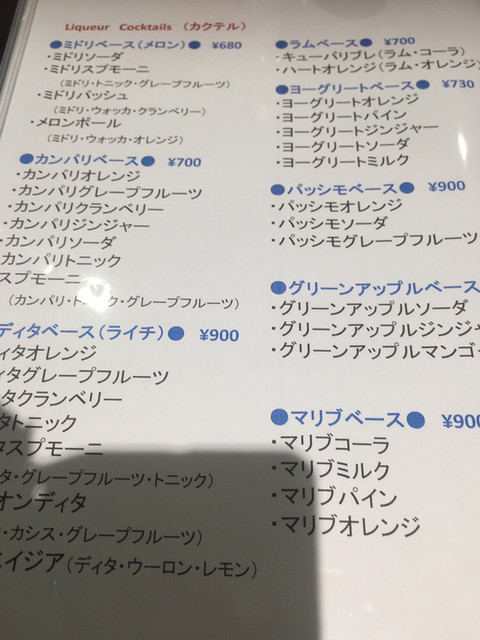 Liqueur Cocktails （カクテル）
●ミドリベース（メロン）● ¥680
・ミドリソーダ
・ミドリスプモーニ
（ミドリ・トニック・グレープフルーツ）
・ミドリバッシュ
（ミドリ・ウォッカ・クランベリー）
・メロンボール
（ミドリ・ウォッカ・オレンジ）
●カンパリベース● ¥700
・カンパリオレンジ
・カンパリグレープフルーツ
・カンパリクランベリー
・カンパリジンジャー
・カンパリソーダ
・カンパリトニック
スプモーニ
（カンパリ・トニック・グレープフルーツ）
ディタベース（ライチ）● ¥900
ィタオレンジ
ィタグレープフルーツ
タクランベリー
タトニック
タスプモーニ
タ・グレープフルーツ・トニック）
オンディタ
・カシス・グレープフルーツ）
エイジア（ディタ・ウーロン・レモン）
●ラムベース● ¥700
・キューバリブレ（ラム・コーラ）
・ハートオレンジ（ラム・オレンジ）
●ヨーグリートベース● ¥730
・ヨーグリートオレンジ
・ヨーグリートパイン
・ヨーグリートジンジャー
・ヨーグリートソーダ
・ヨーグリートミルク
●パッシモベース● ¥900
・パッシモオレンジ
・パッシモソーダ
・パッシモグレープフルーツ
●グリーンアップルベース
・グリーンアップルソーダ
・グリーンアップルジンジャ
・グリーンアップルマンゴ
●マリブベース● ¥900
・マリブコーラ
・マリブミルク
・マリブパイン
・マリブオレンジ